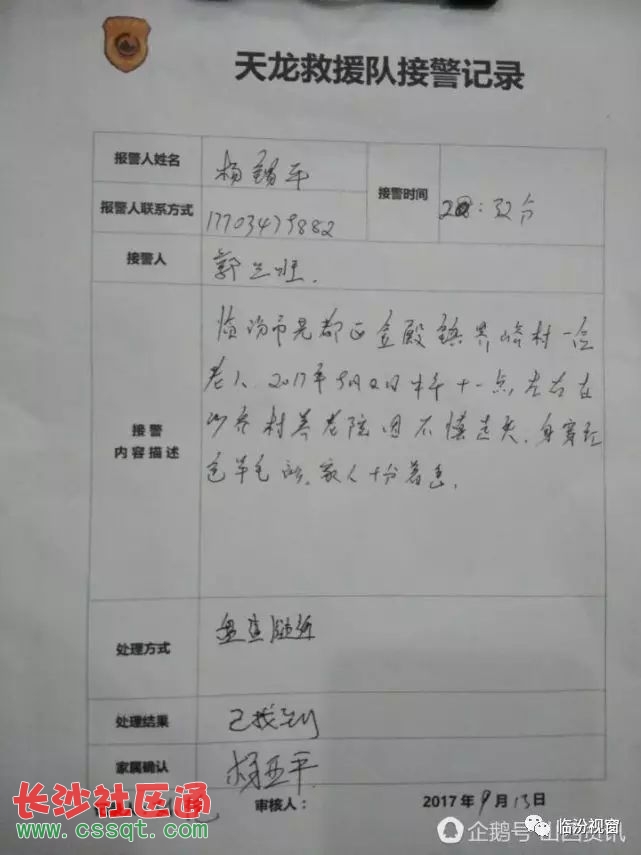 天龙救援队接警记录
报警人姓名 杨 平
接警时间 32分
报警人联系方式 17703479882
接警人 郭兰班.
接警
内容描述
临汾市尧都区金殿镇界峪村一位
老人、2017年9月 日 十一点左右在
村养老院因不慎走失.身穿红
色羊毛 .家人十分着急.
处理方式
处理结果 已找到
家属确认 杨 平
审核人： 2017年9月13日
长沙社区通
www.cssqt.com
企鹅号 山西资讯
临汾视窗